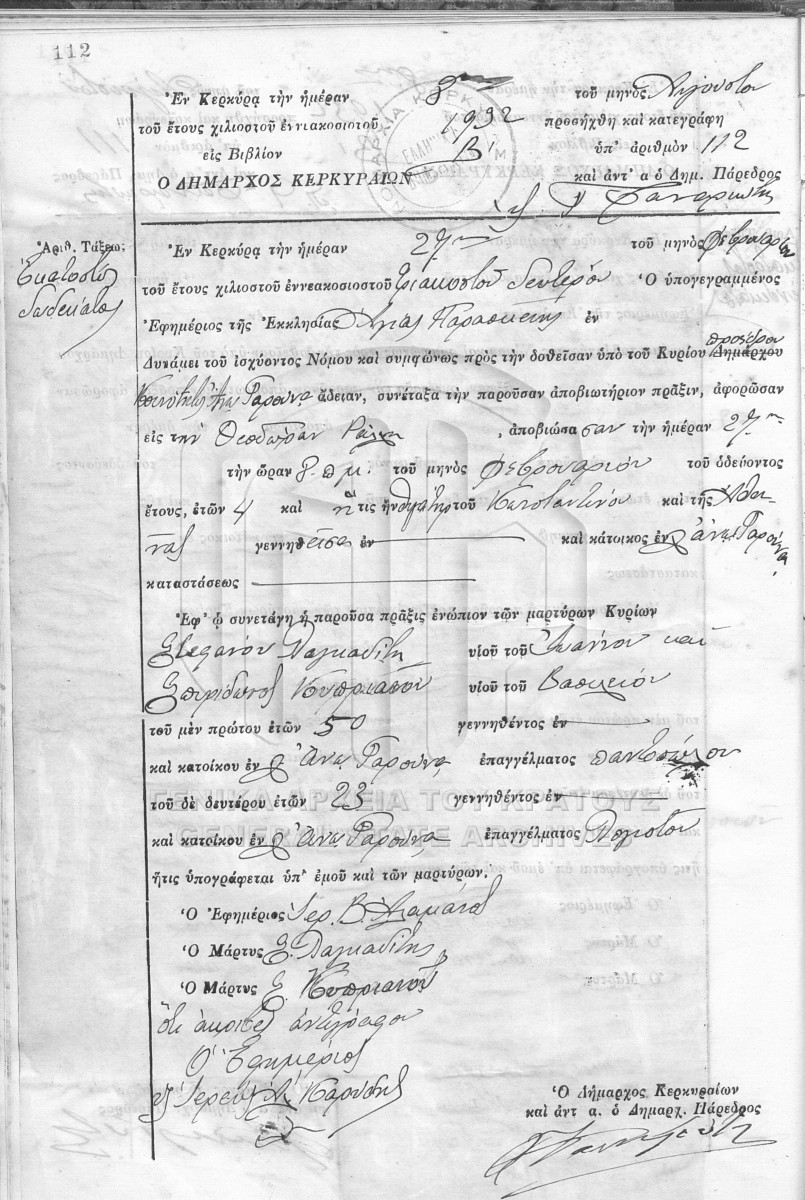 112
Ἐν Κερκύρᾳ τὴν ἡμέραν 8ην τοῦ μηνὸς Αὐγούστου
τοῦ ἔτους χιλιοστοῦ ἐννιακοσιοστοῦ 1932 προσήχθη καὶ κατεγράφη
εἰς Βιβλίον Β' ὑπ' ἀριθμὸν 112
Ο ΔΗΜΑΡΧΟΣ ΚΕΡΚΥΡΑΙΩΝ καὶ ἀντ' α ὁ Δημ. Πάρεδρος
Ἀριθ. Τάξεω;
Ἑκατοστὸς
δωδέκατος
Ἐν Κερκύρᾳ τὴν ἡμέραν 27ην τοῦ μηνὸς Φεβρουαρίου
τοῦ ἔτους χιλιοστοῦ ἐννεακοσιοστοῦ τριακοστοῦ δευτέρου Ὁ ὑπογεγραμμένος
Ἐφημέριος τῆς Ἐκκλησίας Ἁγίας Παρασκευῆς ἐν
Δυνάμει τοῦ ἰσχύοντος Νόμου καὶ συμφώνως πρὸς τὴν δοθεῖσαν ὑπὸ τοῦ Κυρίου Δημάρχου προέδρου
Κοινότητος Ἄνω Γαρούνα ἄδειαν, συνέταξα τὴν παροῦσαν ἀποβιωτήριον πρᾶξιν, ἀφορῶσαν
εἰς τὴν Θεοδώραν , ἀποβιώσασαν τὴν ἡμέραν 27ην
τὴν ὥραν π.μ. τοῦ μηνὸς Φεβρουαρίου τοῦ ὁδεύοντος
ἔτους, ἐτῶν 4 καὶ ἥτις ἦν θυγάτηρ τοῦ Κωνσταντίνου καὶ τῆς Ἀθηνᾶς
γεννηθεῖσα ἐν καὶ κάτοικος ἐν Ἄνω Γαρούνα
καταστάσεως
Ἐφ' ᾧ συνετάγη ἡ παροῦσα πρᾶξις ἐνώπιον τῶν μαρτύρων Κυρίων
Στεφάνου Λαγκαδίτη υἱοῦ τοῦ Ἰωάννου καὶ
Σπυρίδωνος Κυπριανοῦ υἱοῦ τοῦ Βασιλείου
τοῦ μὲν πρώτου ἐτῶν 50 γεννηθέντος ἐν
καὶ κατοίκου ἐν Ἄνω Γαρούνα ἐπαγγέλματος παντοπώλου
τοῦ δὲ δευτέρου ἐτῶν 23 γεννηθέντος ἐν
καὶ κατοίκου ἐν Ἄνω Γαρούνα ἐπαγγέλματος
ἥτις ὑπογράφεται ὑπ' ἐμοῦ καὶ τῶν μαρτύρων.
Ὁ Ἐφημέριος Ἱερ. Β.
Ὁ Μάρτυς Σ. Λαγκαδίτης
Ὁ Μάρτυς Σ. Κυπριανοῦ
Ὅτι ἀκριβὲς ἀντίγραφον
Ὁ Ἐφημέριος
Ὁ Δήμαρχος Κερκυραίων
καὶ ἀντ α. ὁ Δημαρχ. Πάρεδρος
ΓΕΝΙΚΑ ΑΡΧΕΙΑ ΤΟΥ ΚΡΑΤΟΥΣ
GENERAL STATE ARCHIVES